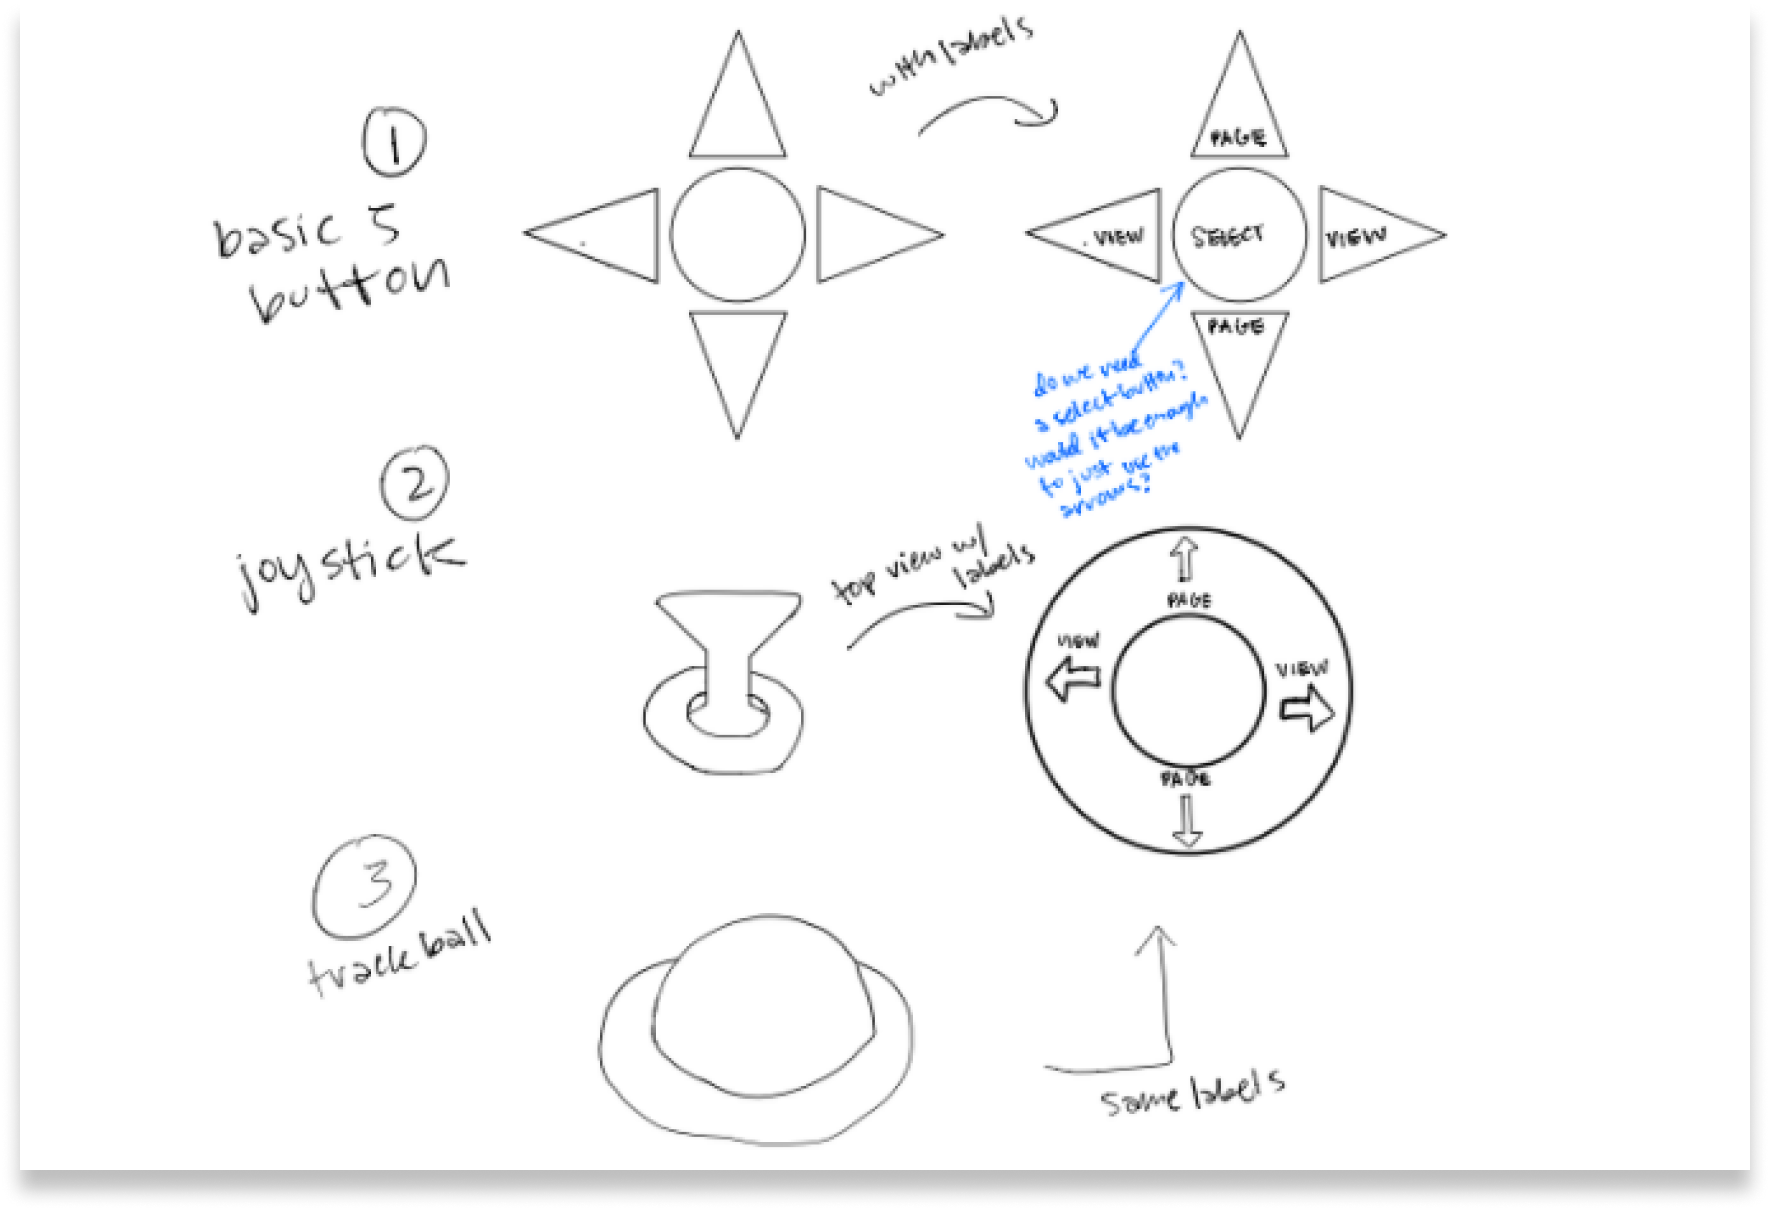 1
basic 5
button
with labels
PAGE
VIEW SELECT VIEW
PAGE
do we need
a select button?
would it be enough
to just use the
arrows?
2
joystick
top view w/
labels
PAGE
VIEW
VIEW
PAGE
3
trackball
same labels